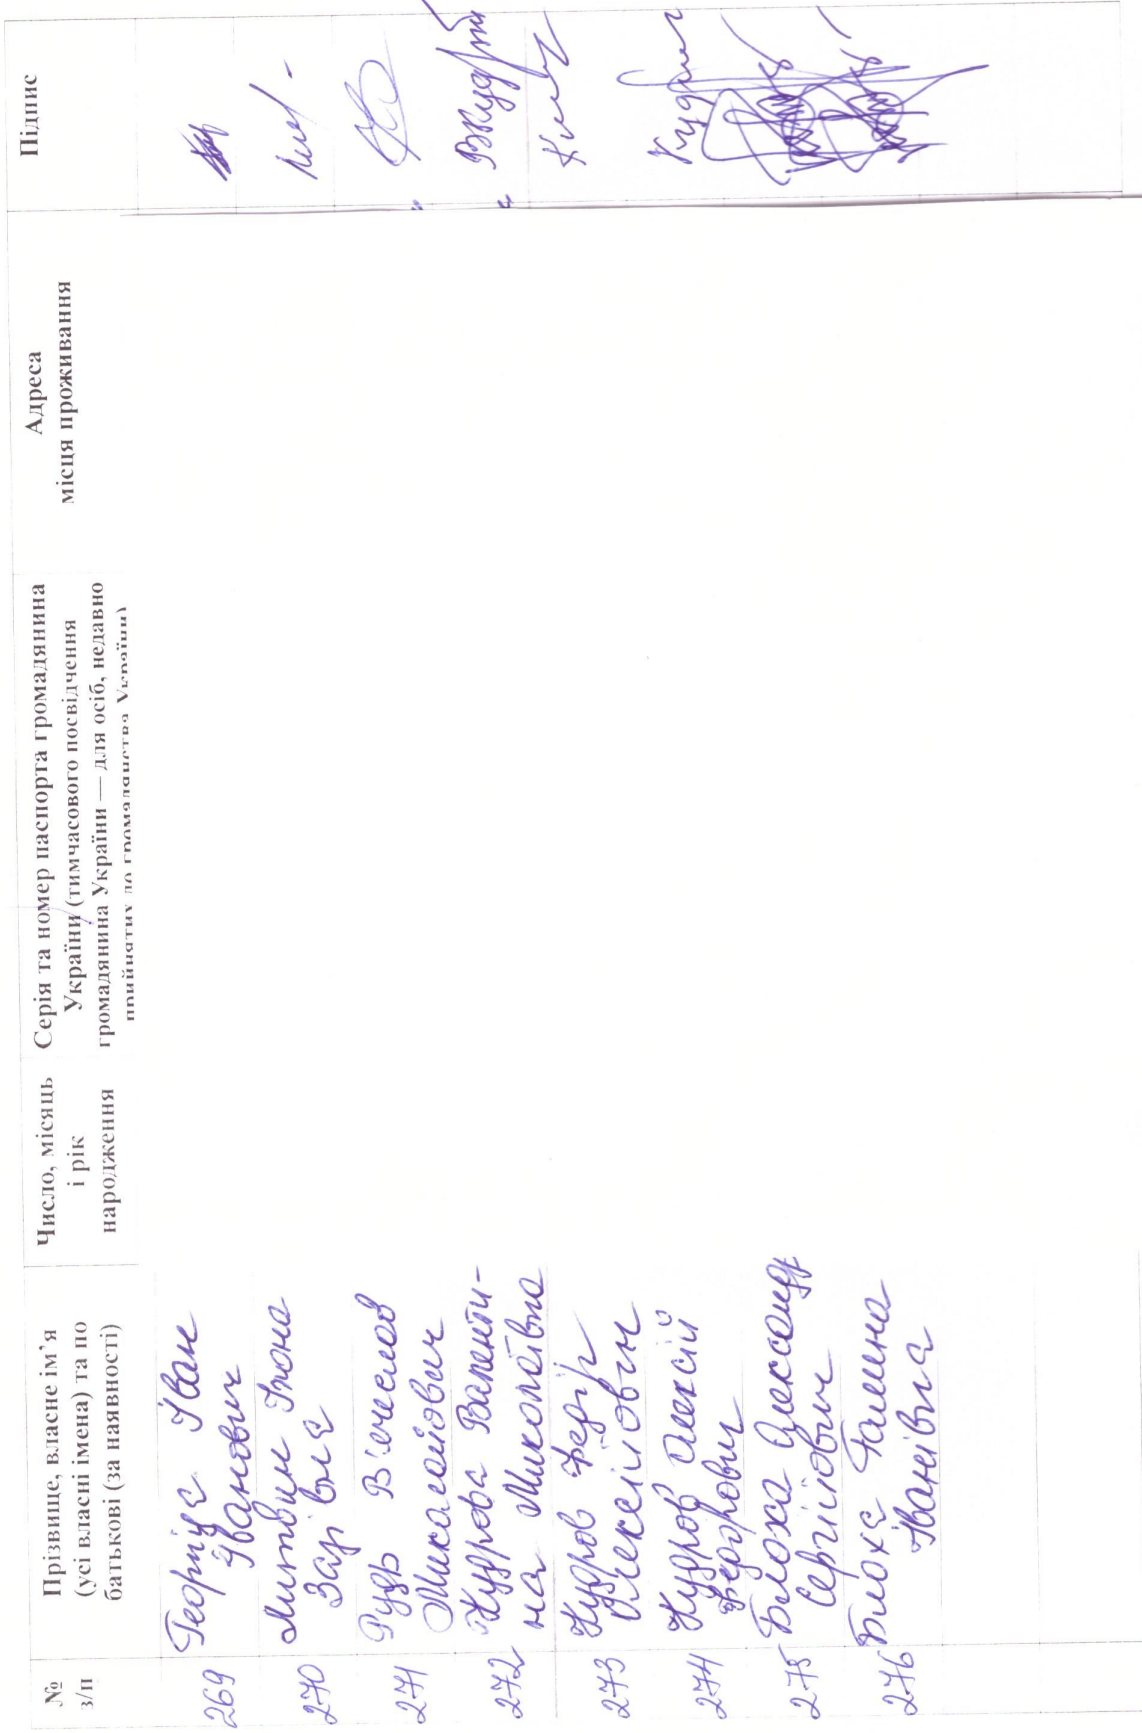 №
з/п
Прізвище, власне ім’я
(усі власні імена) та по
батькові (за наявності)
Число, місяць
і рік
народження
Серія та номер паспорта громадянина
України (тимчасового посвідчення
громадянина України — для осіб, недавно
прийнятих до громадянства України)
Адреса
місця проживання
Підпис
269
Іван
Іванович
270
Литвин Ілона
271
Рудь В'ячеслав
Миколайович
272
Кудрова Валенти-
на Миколаївна
ВКудр
273
Кудров Федір
Олексійович
274
Кудров Олексій
Федорович
275
Блоха Олександр
Сергійович
276
Блоха Галина
Іванівна